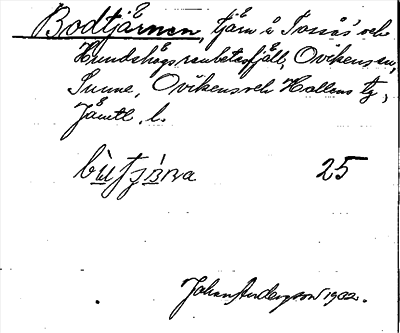 Bodtjärnen, tjärn i Tossås och
Hundshögs renbetesfjäll, Ovikens sn,
Sunne, Ovikens och Hallens tg,
Jämtl. l.
bùtjäɳa 25
Johan Anderzson 1902.